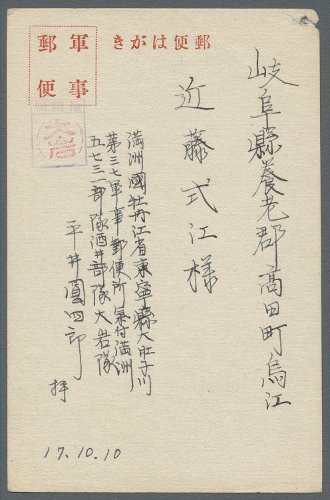 郵便はがき
軍事
郵便
岐阜縣養老郡高田町烏江
近藤式江様
滿洲國牡丹江省東寧縣大肚子川
第三七軍事郵便所氣付滿洲
五七三一部隊酒井部隊大岩隊
平井圓四郎
拝
17.10.10